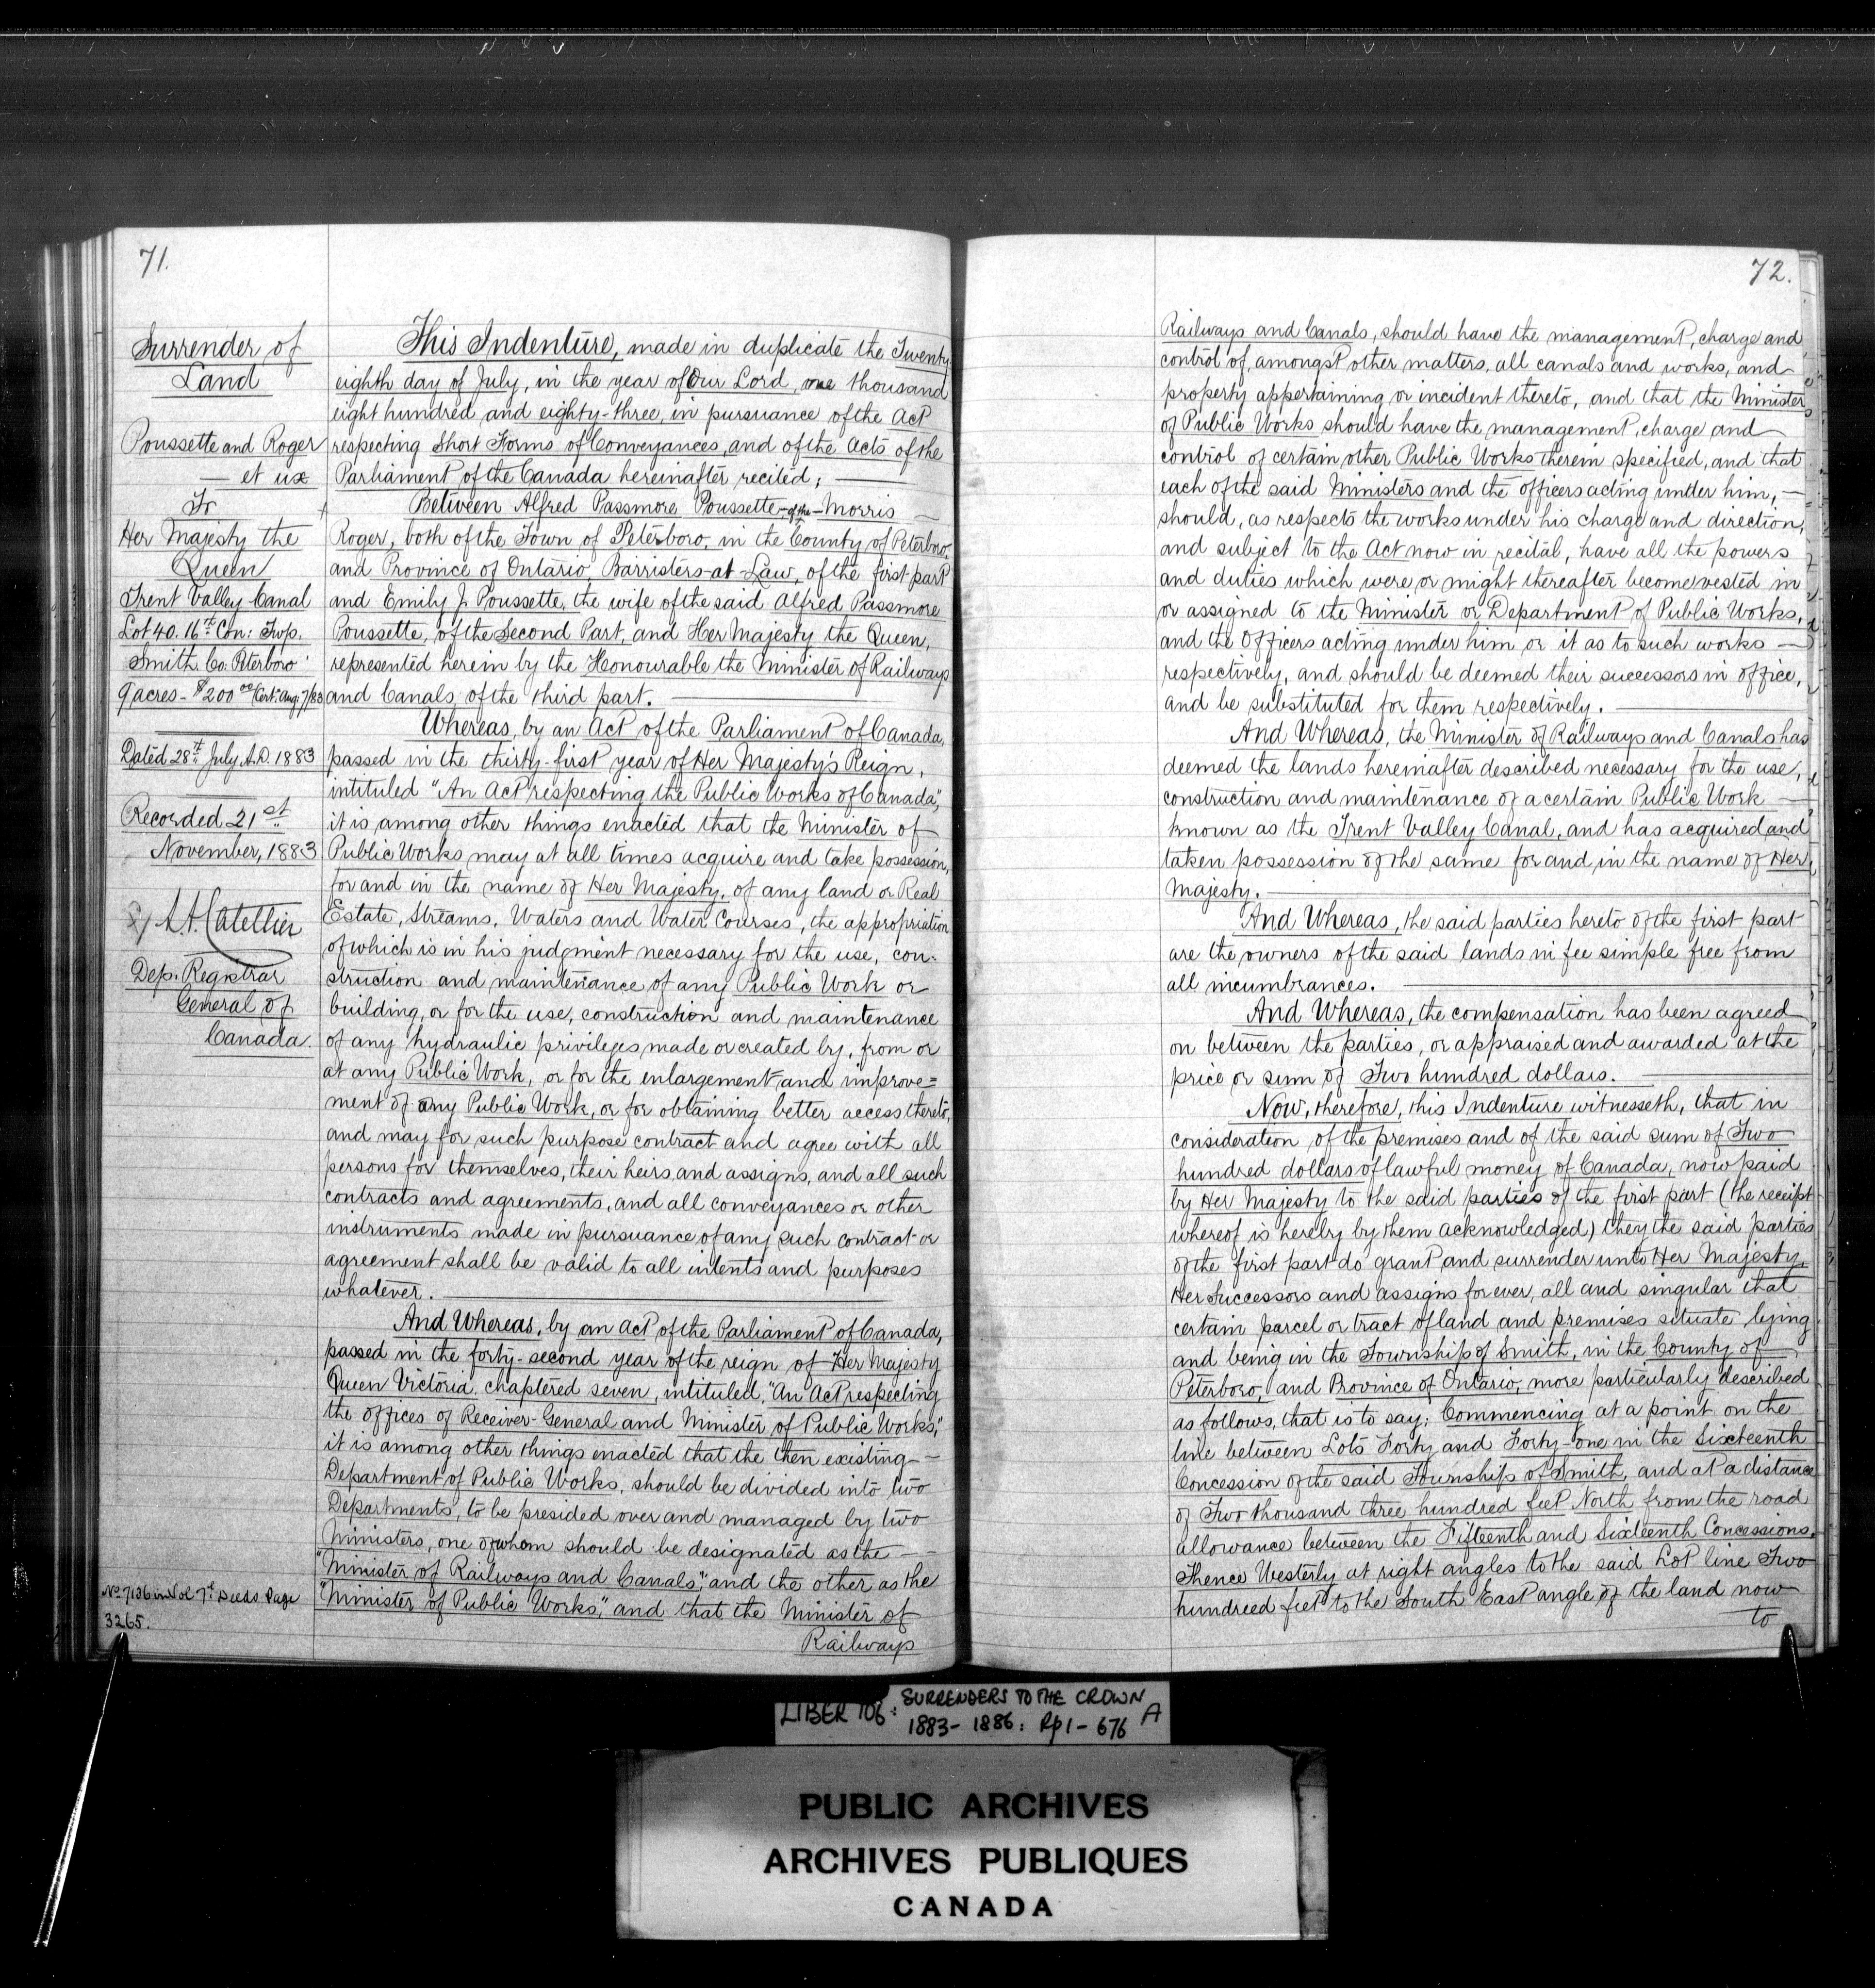 71.
Surrender of
Land
Poussette and Roger
et ux
To
Her Majesty the
Queen
Trent Valley Canal
Lot 40. 16th Con: Twp.
Smith Co. Peterboro'
9 acres - $200 00 Cert: Aug: 7/83
Dated 28th July A.D. 1883
Recorded 21st
November, 1883
L. A. Catellier
Dep. Registrar
General of
Canada.
No 7136 in Vol 7th Deeds Page
3265.
This Indenture, made in duplicate the Twenty
eighth day of July, in the year of Our Lord, one thousand
eight hundred and eighty-three, in pursuance of the Act
respecting Short Forms of Conveyances, and of the Acts of the
Parliament of the Canada hereinafter recited;
Between Alfred Passmore Poussette, - of the - Morris
Roger, both of the Town of Peterboro, in the County of Peterboro,
and Province of Ontario, Barristers-at-Law, of the first part
and Emily J. Poussette, the wife of the said Alfred Passmore
Poussette, of the Second Part, and Her Majesty the Queen,
represented herein by the Honourable the Minister of Railways
and Canals, of the third part.
Whereas, by an Act of the Parliament of Canada,
passed in the thirty-first year of Her Majesty's Reign,
intituled "An Act respecting the Public Works of Canada,"
it is among other things enacted that the Minister of
Public Works may at all times acquire and take possession,
for and in the name of Her Majesty, of any land or Real
Estate, Streams, Waters and Water Courses, the appropriation
of which is in his judgment necessary for the use, con-
struction and maintenance of any Public Work or
building, or for the use, construction and maintenance
of any hydraulic privileges made or created by, from or
at any Public Work, or for the enlargement and improve=
ment of any Public Work, or for obtaining better access thereto,
and may for such purpose contract and agree with all
persons for themselves, their heirs and assigns, and all such
contracts and agreements, and all conveyances or other
instruments made in pursuance of any such contract or
agreement shall be valid to all intents and purposes
whatever.
And Whereas, by an Act of the Parliament of Canada,
passed in the forty-second year of the reign of Her Majesty
Queen Victoria, chaptered seven, intituled, "An Act respecting
the offices of Receiver-General and Minister of Public Works,"
it is among other things enacted that the then existing
Department of Public Works, should be divided into two
Departments, to be presided over and managed by two
Ministers, one of whom should be designated as the
"Minister of Railways and Canals," and the other as the
"Minister of Public Works," and that the Minister of
Railways
72.
Railways and Canals, should have the management, charge and
control of, amongst other matters, all canals and works, and
property appertaining or incident thereto, and that the Minister
of Public Works should have the management, charge and
control of certain other Public Works therein specified, and that
each of the said Ministers and the officers acting under him,
should, as respects the works under his charge and direction,
and subject to the Act now in recital, have all the powers
and duties which were or might thereafter become vested in
or assigned to the Minister or Department of Public Works,
and the Officers acting under him or it as to such works
respectively, and should be deemed their successors in office,
and be substituted for them respectively.
And Whereas, the Minister of Railways and Canals has
deemed the lands hereinafter described necessary for the use,
construction and maintenance of a certain Public Work
known as the Trent Valley Canal, and has acquired and
taken possession of the same for and in the name of Her
Majesty.
And Whereas, the said parties hereto of the first part
are the owners of the said lands in fee simple free from
all incumbrances.
And Whereas, the compensation has been agreed
on between the parties, or appraised and awarded at the
price or sum of Two hundred dollars.
Now, therefore, this Indenture witnesseth, that in
consideration of the premises and of the said sum of Two
hundred dollars of lawful money of Canada, now paid
by Her Majesty to the said parties of the first part (the receipt
whereof is hereby by them acknowledged) they the said parties
of the first part do grant and surrender unto Her Majesty,
Her Successors and assigns for ever, all and singular that
certain parcel or tract of land and premises situate lying
and being in the Township of Smith, in the County of
Peterboro, and Province of Ontario, more particularly described
as follows, that is to say: Commencing at a point on the
line between Lots Forty and Forty-one in the Sixteenth
Concession of the said Township of Smith, and at a distance
of Two thousand three hundred feet North from the road
allowance between the Fifteenth and Sixteenth Concessions.
Thence Westerly at right angles to the said Lot line Two
hundreed feet to the South East angle of the land now
to
LIBER 106: SURRENDERS TO THE CROWN A
1883-1886: Rp 1-676
PUBLIC ARCHIVES
ARCHIVES PUBLIQUES
CANADA